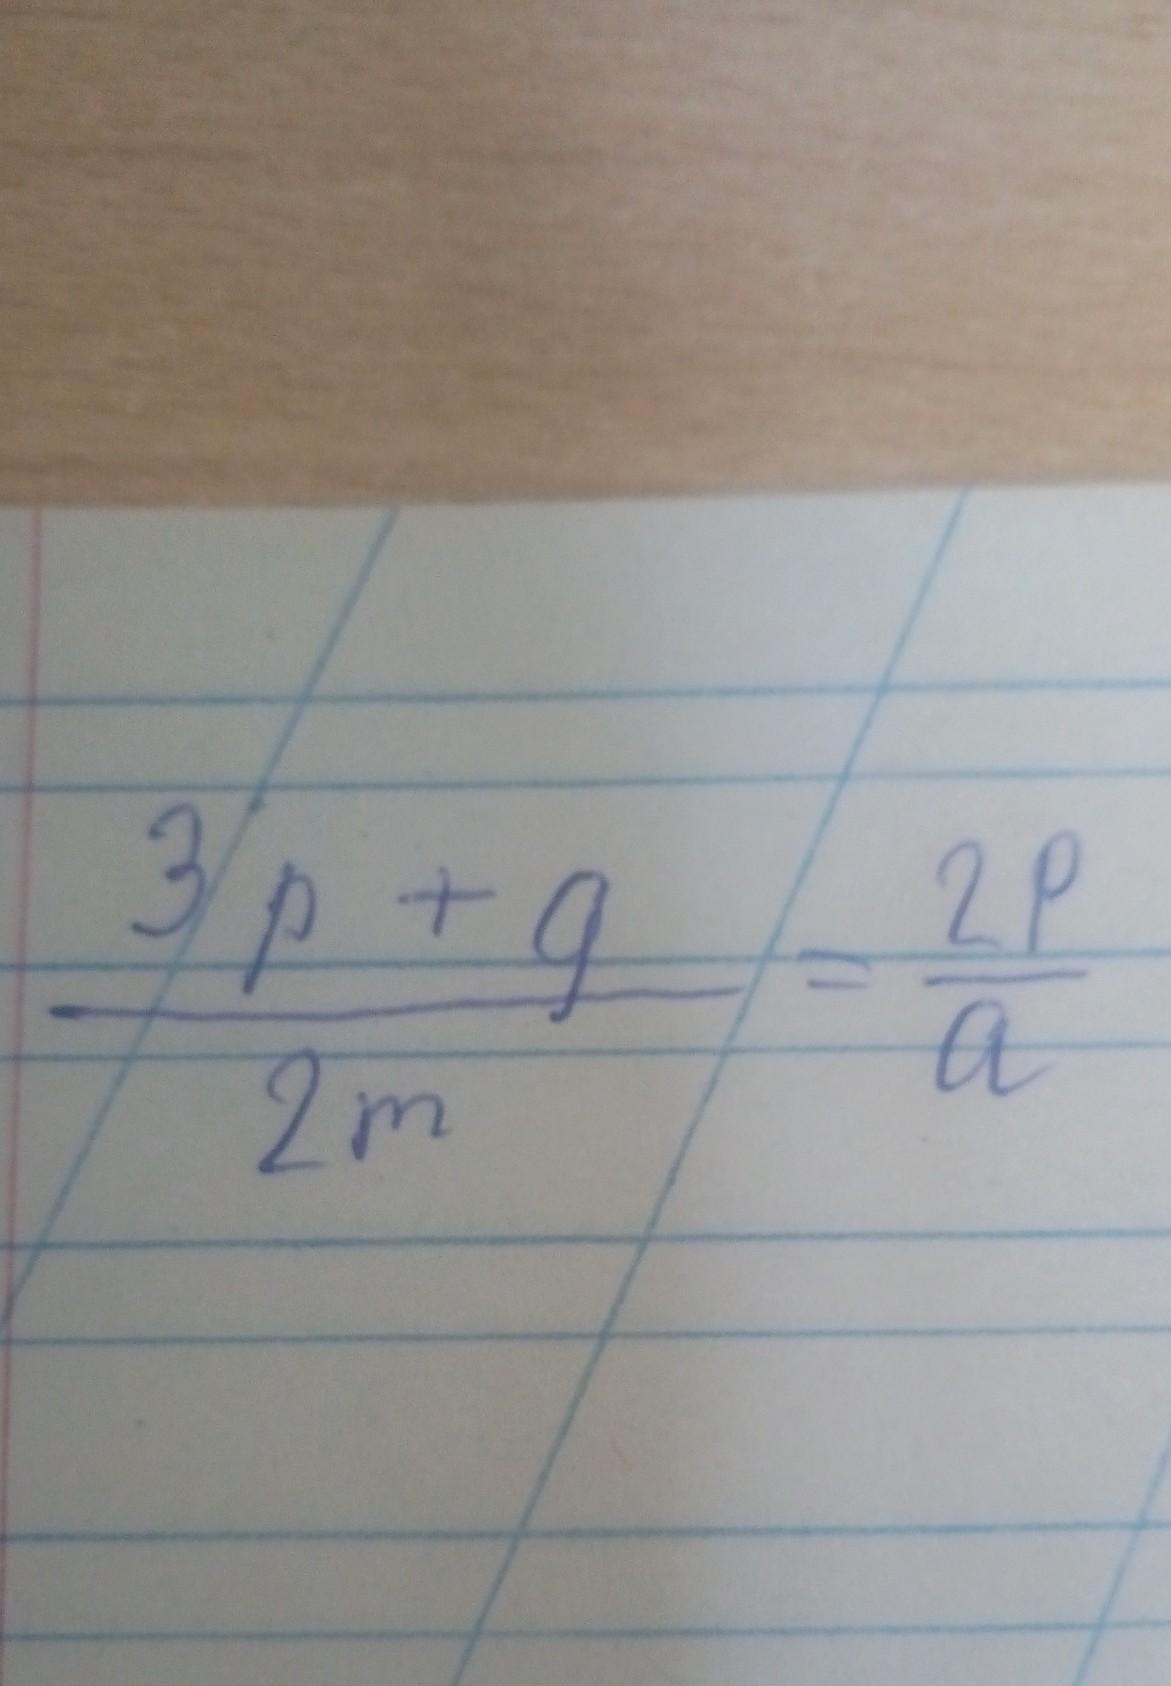 3p + q
2m
= 2p
a